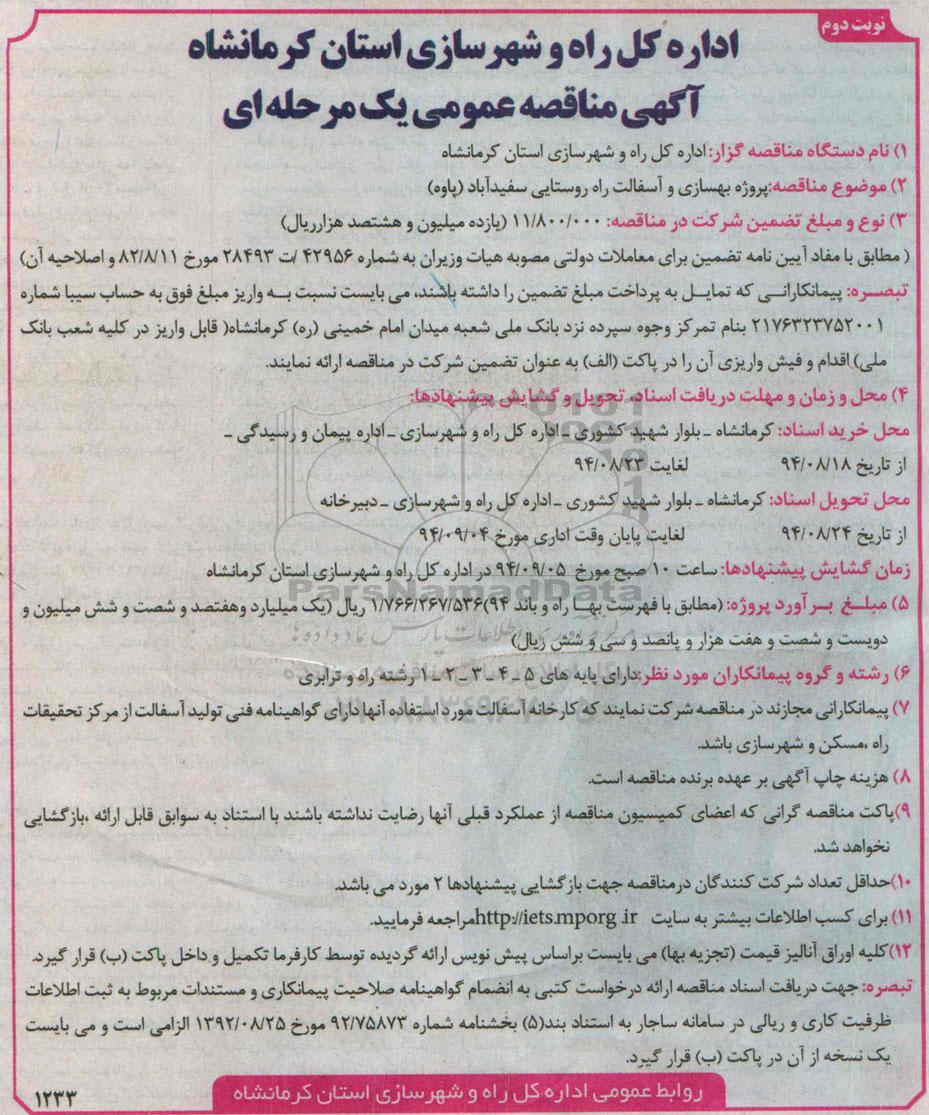 نوبت دوم
اداره کل راه و شهرسازی استان کرمانشاه
آگهی مناقصه عمومی یک مرحله ای
۱) نام دستگاه مناقصه گزار: اداره کل راه و شهرسازی استان کرمانشاه
۲) موضوع مناقصه: پروژه بهسازی و آسفالت راه روستایی سفیدآباد (پاوه)
۳) نوع و مبلغ تضمین شرکت در مناقصه: ۱۱/۸۰۰/۰۰۰ (یازده میلیون و هشتصد هزارریال)
( مطابق با مفاد آیین نامه تضمین برای معاملات دولتی مصوبه هیات وزیران به شماره ۴۲۹۵۶ /ت ۲۸۴۹۳ مورخ ۸۲/۸/۱۱ و اصلاحیه آن)
تبصره: پیمانکارانی که تمایل به پرداخت مبلغ تضمین را داشته باشند، می بایست نسبت به واریز مبلغ فوق به حساب سیبا شماره
۲۱۷۶۳۲۳۷۵۲۰۰۱ بنام تمرکز وجوه سپرده نزد بانک ملی شعبه میدان امام خمینی (ره) کرمانشاه( قابل واریز در کلیه شعب بانک
ملی) اقدام و فیش واریزی آن را در پاکت (الف) به عنوان تضمین شرکت در مناقصه ارائه نمایند.
۴) محل و زمان و مهلت دریافت اسناد، تحویل و گشایش پیشنهادها:
محل خرید اسناد: کرمانشاه ـ بلوار شهید کشوری ـ اداره کل راه و شهرسازی ـ اداره پیمان و رسیدگی ـ
از تاریخ ۹۴/۰۸/۱۸ لغایت ۹۴/۰۸/۲۳
محل تحویل اسناد: کرمانشاه ـ بلوار شهید کشوری ـ اداره کل راه و شهرسازی ـ دبیرخانه
از تاریخ ۹۴/۰۸/۲۴ لغایت پایان وقت اداری مورخ ۹۴/۰۹/۰۴
زمان گشایش پیشنهادها: ساعت ۱۰ صبح مورخ ۹۴/۰۹/۰۵ در اداره کل راه و شهرسازی استان کرمانشاه
ParsNamadData
۵) مبلغ برآورد پروژه: (مطابق با فهرست بها راه و باند ۹۴)۱/۷۶۶/۲۶۷/۵۳۶ ریال (یک میلیارد وهفتصد و شصت و شش میلیون و
دویست و شصت و هفت هزار و پانصد و سی و شش ریال)
۶) رشته و گروه پیمانکاران مورد نظر: دارای پایه های ۵ ـ ۴ ـ ۳ ـ ۲ ـ ۱ رشته راه و ترابری
۷) پیمانکارانی مجازند در مناقصه شرکت نمایند که کارخانه آسفالت مورد استفاده آنها دارای گواهینامه فنی تولید آسفالت از مرکز تحقیقات
راه ،مسکن و شهرسازی باشد.
۸) هزینه چاپ آگهی بر عهده برنده مناقصه است.
۹)پاکت مناقصه گرانی که اعضای کمیسیون مناقصه از عملکرد قبلی آنها رضایت نداشته باشند با استناد به سوابق قابل ارائه ،بازگشایی
نخواهد شد.
۱۰)حداقل تعداد شرکت کنندگان درمناقصه جهت بازگشایی پیشنهادها ۲ مورد می باشد.
۱۱) برای کسب اطلاعات بیشتر به سایت http://iets.mporg.ir مراجعه فرمایید.
۱۲)کلیه اوراق آنالیز قیمت (تجزیه بها) می بایست براساس پیش نویس ارائه گردیده توسط کارفرما تکمیل و داخل پاکت (ب) قرار گیرد.
تبصره: جهت دریافت اسناد مناقصه ارائه درخواست کتبی به انضمام گواهینامه صلاحیت پیمانکاری و مستندات مربوط به ثبت اطلاعات
ظرفیت کاری و ریالی در سامانه ساجار به استناد بند(۵) بخشنامه شماره ۹۲/۷۵۸۷۳ مورخ ۱۳۹۲/۰۸/۲۵ الزامی است و می بایست
یک نسخه از آن در پاکت (ب) قرار گیرد.
روابط عمومی اداره کل راه و شهرسازی استان کرمانشاه
۱۲۳۳